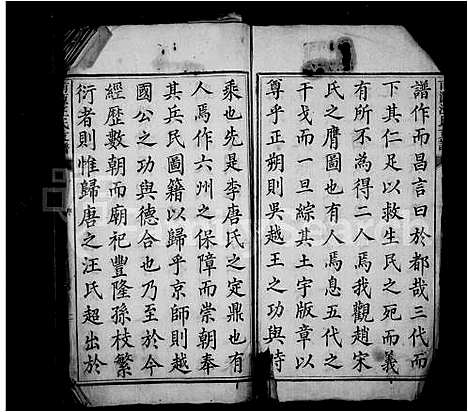 譜作而昌言曰於都哉三代而
下其仁足以救生民之死而義
有所不為得二人焉我觀趙宋
氏之膺圖也有人焉息五代之
干戈而一旦綜其土宇版章以
尊乎正朔則吳越王之功與時
乘也先是李唐氏之定鼎也有
人焉作六州之保障而崇朝奉
其兵民圖籍以歸乎京師則越
國公之功與德合也乃至於今
經歷數朝而廟祀豐隆孫枝繁
衍者則惟歸唐之汪氏超出於
FamilySearch